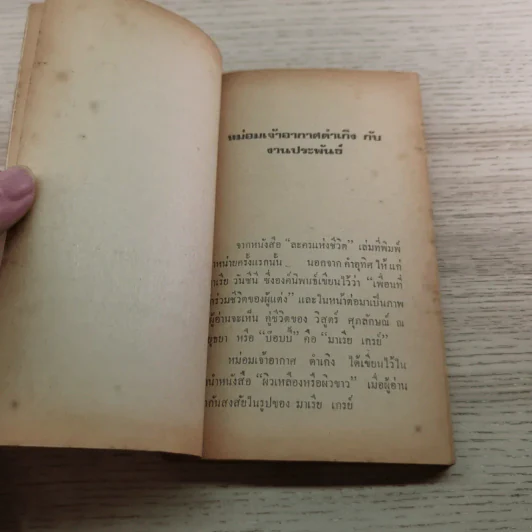 หม่อมเจ้าอากาศดำเกิง กับ
งานประพันธ์
จากหนังสือ "ละครแห่งชีวิต" เล่มที่พิมพ์
หน่ายครั้งแรกนั้น นอกจาก คำอุทิศ ให้ แก่
าเรีย วันซินี ซึ่งองค์นิพนธ์เขียนไว้ว่า "เพื่อนที่
ร่วมชีวิตของผู้แต่ง" และในหน้าต่อมาเป็นภาพ
ผู้อ่านจะเห็น คู่ชีวิตของ วิสูตร์ ศุภลักษณ์ ณ
ยุธยา หรือ "บ๊อบบี้" คือ "มาเรีย เกรย์"
หม่อมเจ้าอากาศ ดำเกิง ได้เขียนไว้ใน
นำหนังสือ "ผิวเหลืองหรือผิวขาว" เมื่อผู้อ่าน
กันสงสัยในรูปของ มาเรีย เกรย์